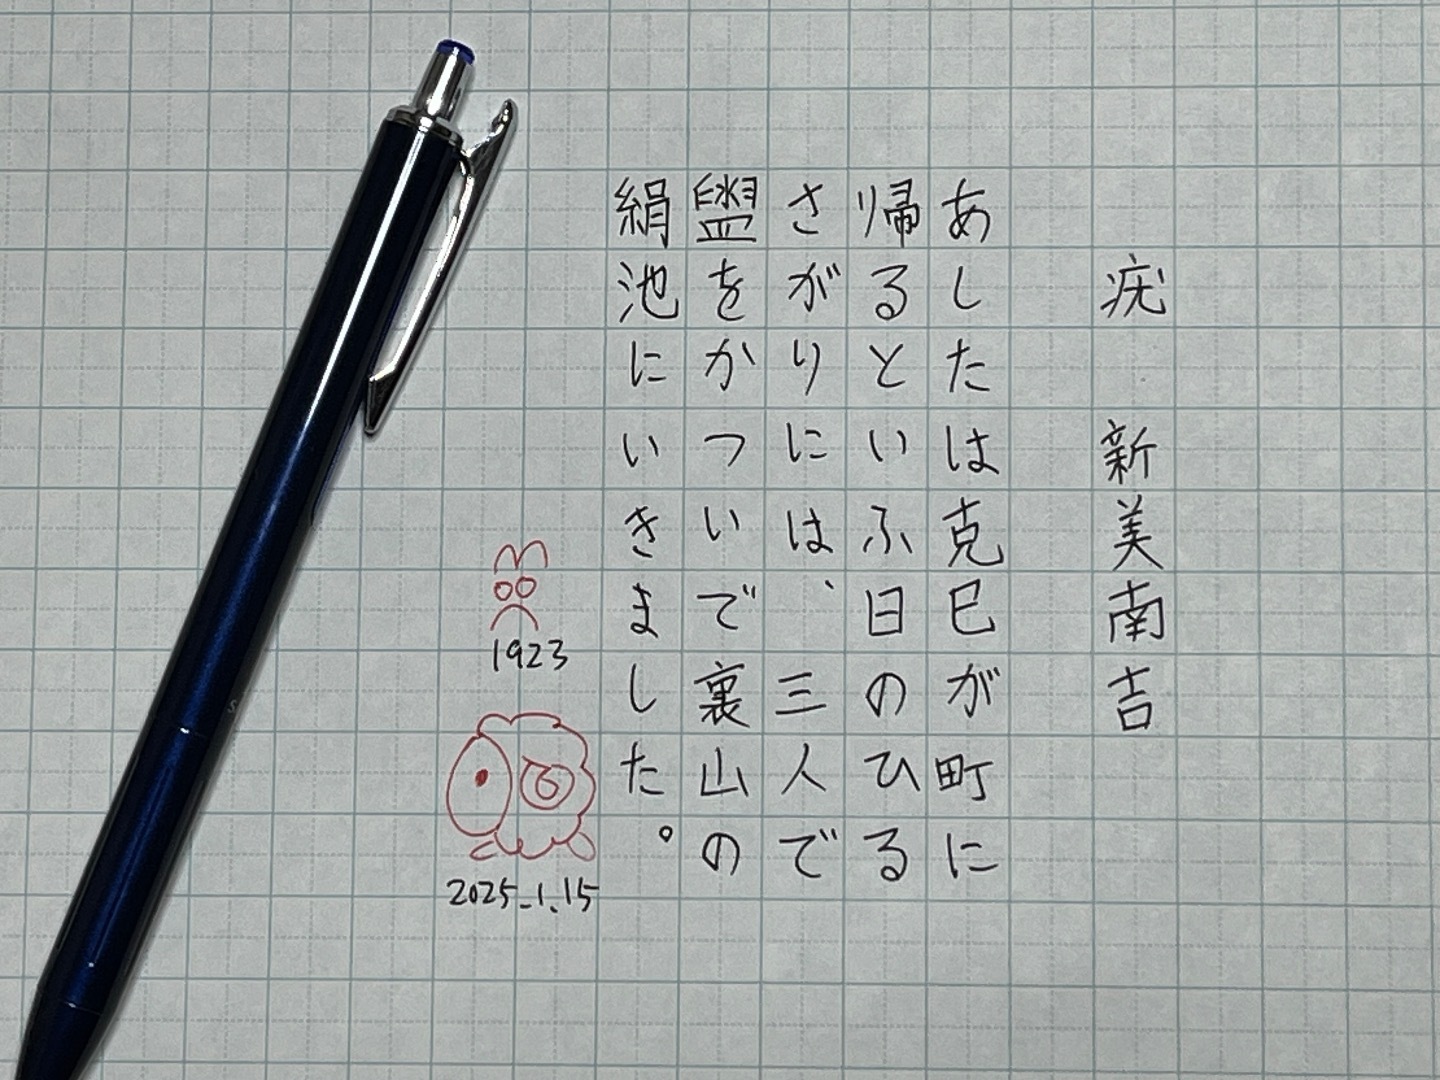 疣　新美南吉
あしたは克巳が町に
帰るといふ日のひる
さがりには、三人で
盥をかついで裏山の
絹池にいきました。
1923
2025.1.15